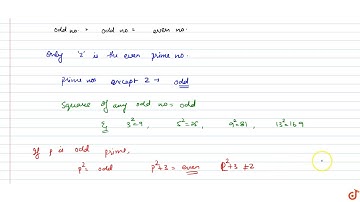 odd no. + odd no = even no.
Only '2' is the even prime no.
prime no except 2 → odd
Square of any odd no = odd
Eg 3²=9, 5²=25, 9²=81, 13²=169
If p is odd prime,
p² = odd p²+3 = even p²+3 ≠2